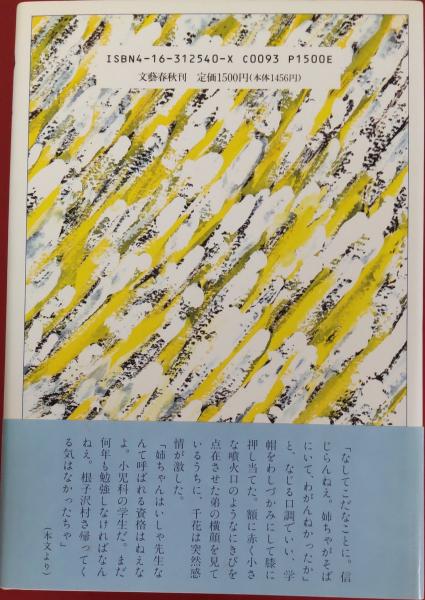 ISBN4-16-312540-X C0093 P1500E
文藝春秋刊 定価1500円(本体1456円)
「なしてこだなことに。信
じらんねえ。姉ちゃがそば
にいて、わがんねかったか」
と、なじる口調でいい、学
帽をわしづかみにして膝に
押し当てた。額に赤く小さ
な噴火口のようなにきびを
点在させた弟の横顔を見て
いるうちに、千花は突然感
情が激した。
「姉ちゃんはいしゃ先生な
んて呼ばれる資格はねえな
よ。小児科の学生だ。まだ
何年も勉強しなければなん
ねえ。根子沢村さ帰ってく
る気はなかったちゃ」
(本文より)